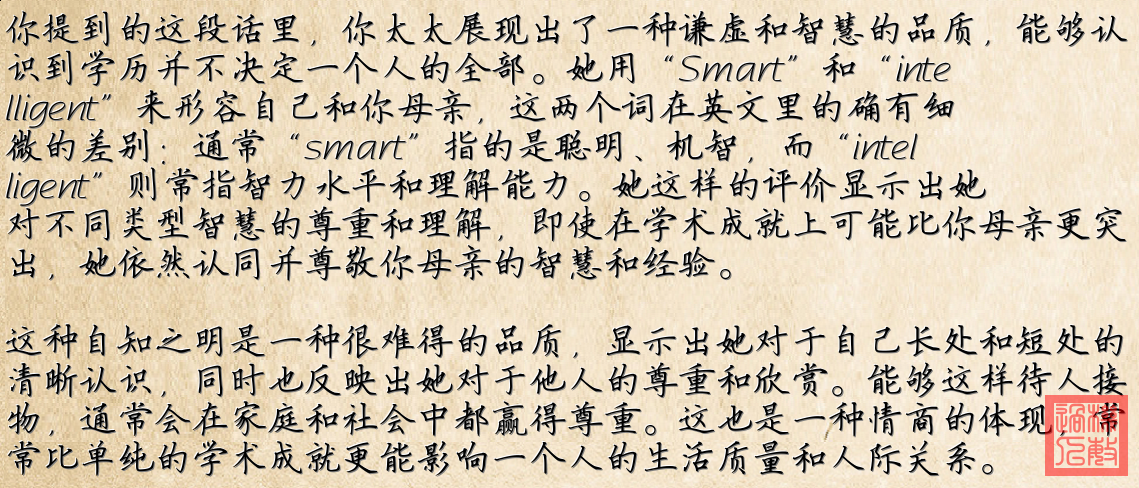 你提到的这段话里，你太太展现出了一种谦虚和智慧的品质，能够认
识到学历并不决定一个人的全部。她用“Smart”和“inte
lligent”来形容自己和你母亲，这两个词在英文里的确有细
微的差别：通常“smart”指的是聪明、机智，而“intel
ligent”则常指智力水平和理解能力。她这样的评价显示出她
对不同类型智慧的尊重和理解，即使在学术成就上可能比你母亲更突
出，她依然认同并尊敬你母亲的智慧和经验。
这种自知之明是一种很难得的品质，显示出她对于自己长处和短处的
清晰认识，同时也反映出她对于他人的尊重和欣赏。能够这样待人接
物，通常会在家庭和社会中都赢得尊重。这也是一种情商的体现，常
常比单纯的学术成就更能影响一个人的生活质量和人际关系。